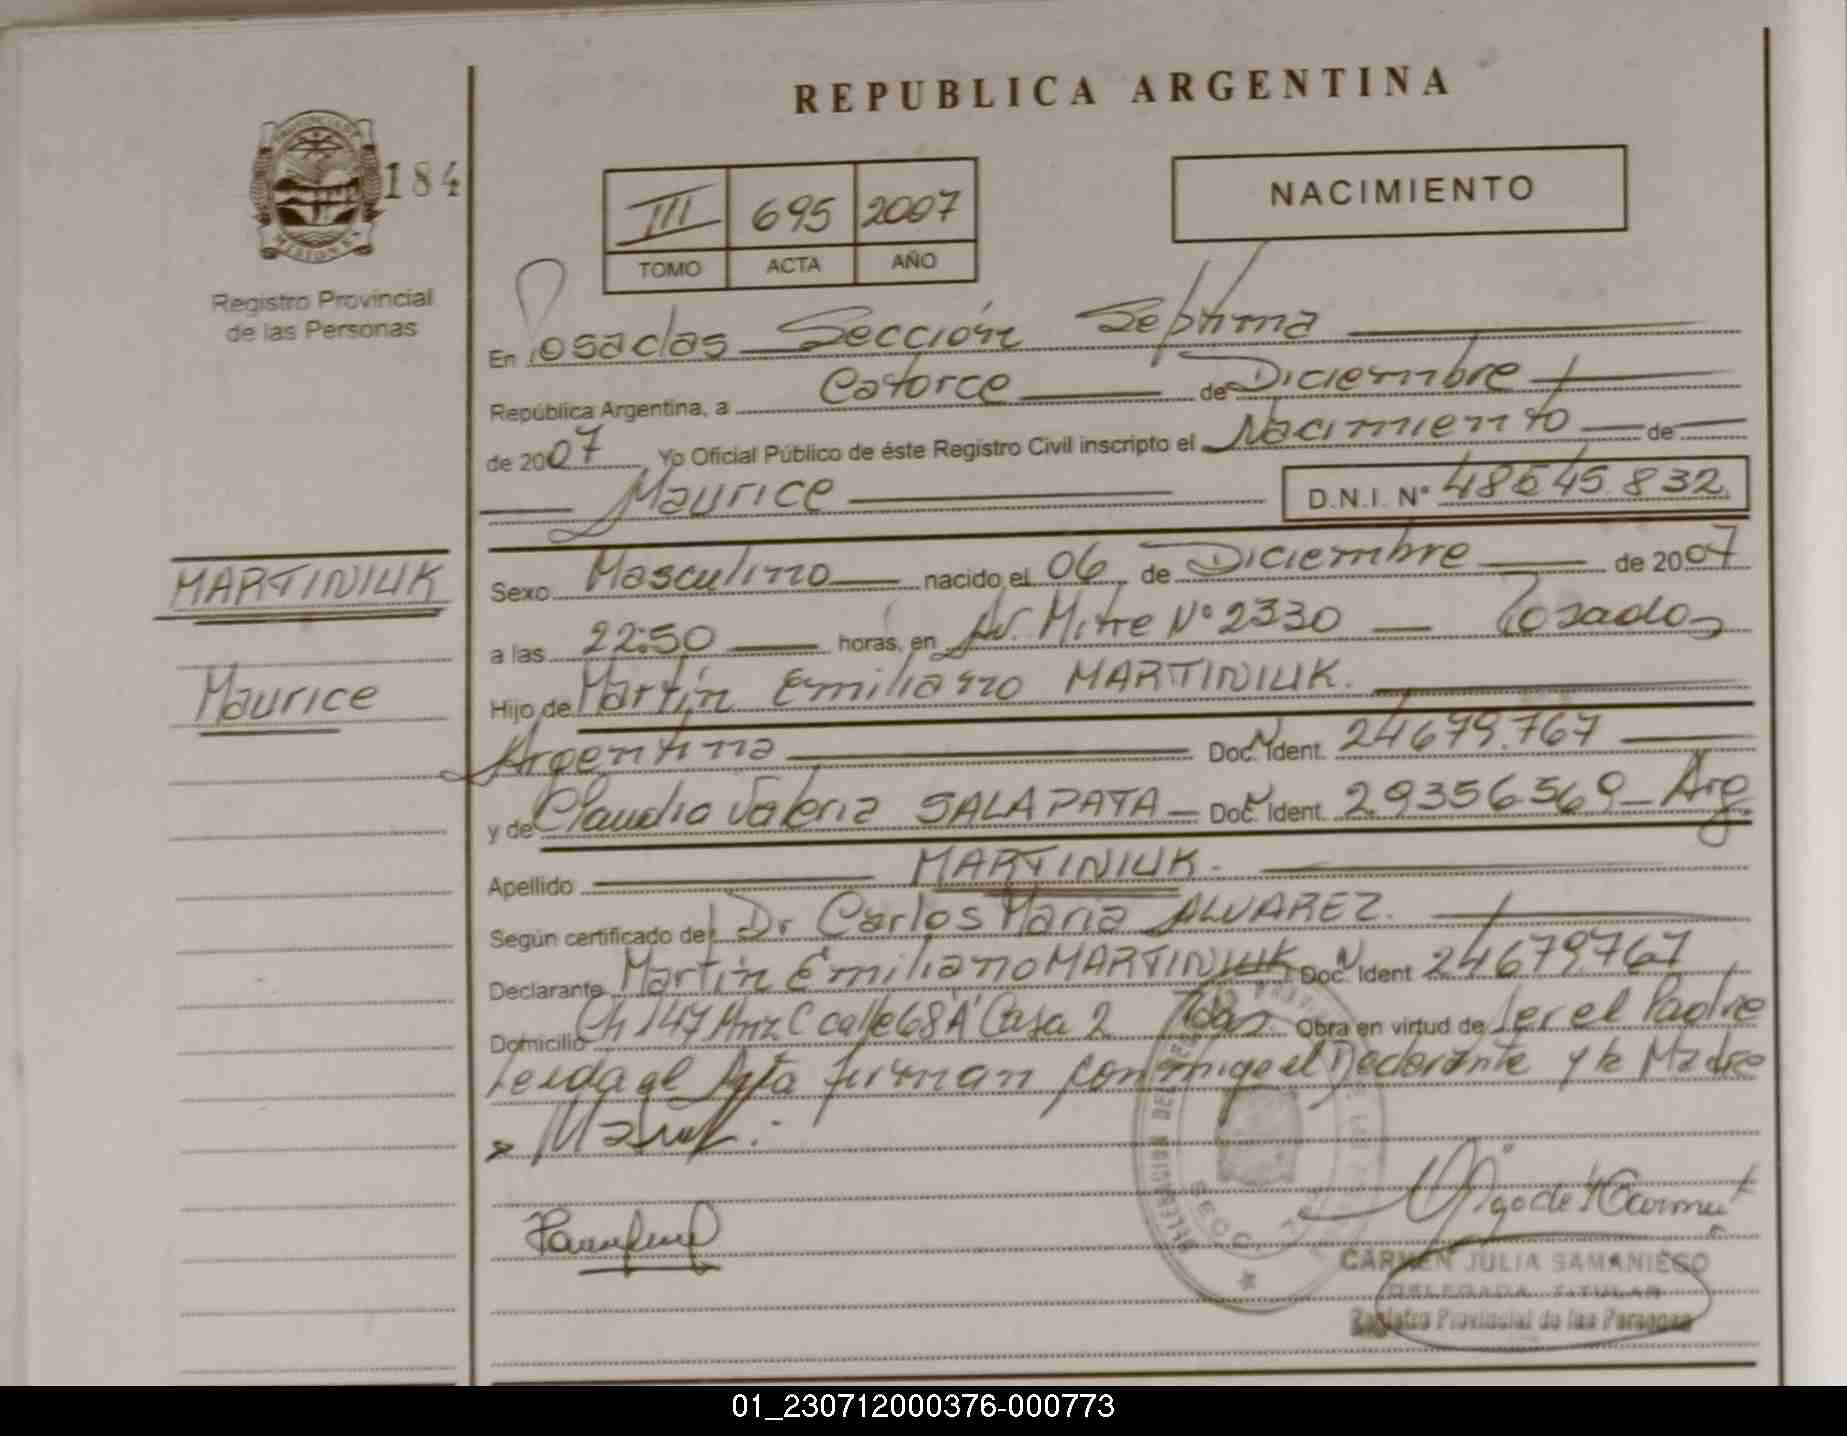 REPUBLICA ARGENTINA
PROVINCIA DE
MISIONES
184
Registro Provincial
de las Personas
III 695 2007
TOMO ACTA AÑO
NACIMIENTO
En Posadas Sección Septima
República Argentina, a Catorce de Diciembre
de 2007 Yo Oficial Público de éste Registro Civil inscripto el Nacimiento de
Maurice D.N.I. N° 48645832
MARTINIUK
Maurice
Sexo Masculino nacido el 06 de Diciembre de 2007
a las 22:50 horas, en Av. Mitre N° 2330 Posadas
Hijo de Martín Emiliano MARTINIUK.
Argentina Doc. Ident. 24679.767
y de Claudia Valeria SALAPATA Doc. Ident. 29356569 Arg.
Apellido MARTINIUK.
Según certificado del Dr Carlos Maria ALVAREZ.
Declarante Martín Emiliano MARTINIUK Doc. Ident 24679767
Domicilio Ch 147 Mnz C calle 68 "A" Casa 2 Pdas Obra en virtud de Ser el Padre
Leida el Acta firman conmigo el Declarante y la Madre
CARMEN JULIA SAMANIEGO
DELEGADA TITULAR
Registro Provincial de las Personas
01_230712000376-000773